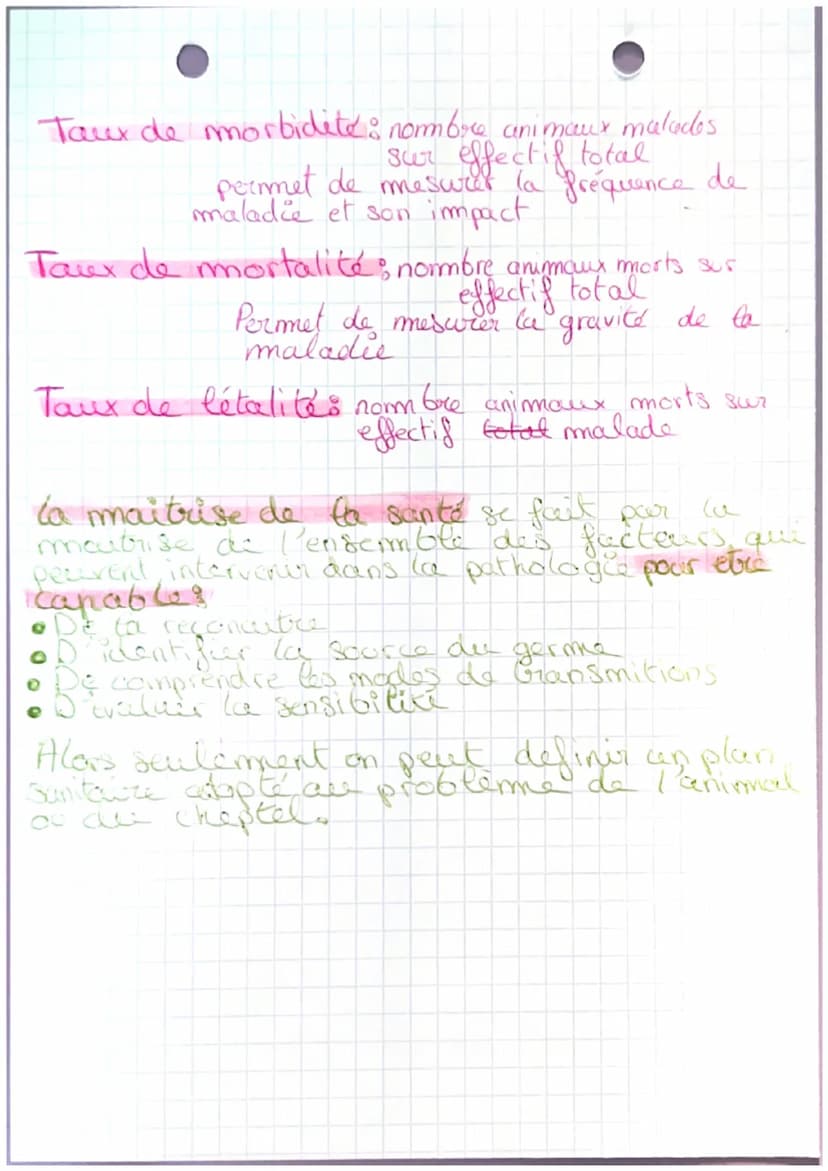 Taux de morbidité : nombre animaux malades
sur effectif total
permet de mesurer la fréquence de
maladie et son impact
Taux de mortalité : nombre animaux morts sur
effectif total
Permet de mesurer la gravité de la
maladie
Taux de létalité : nombre animaux morts sur
effectif total malade
La maitrise de la santé se fait par la
maitrise de l'ensemble des facteurs qui
peuvent intervenir dans la pathologie pour etre
capable :
• De la reconaitre
• D'identifier la source du germe
• De comprendre les modes de transmitions
• D'evaluer la sensibilité
Alors seulement on peut definir un plan
sanitaire adapté au problème de l'animal
ou du cheptel.